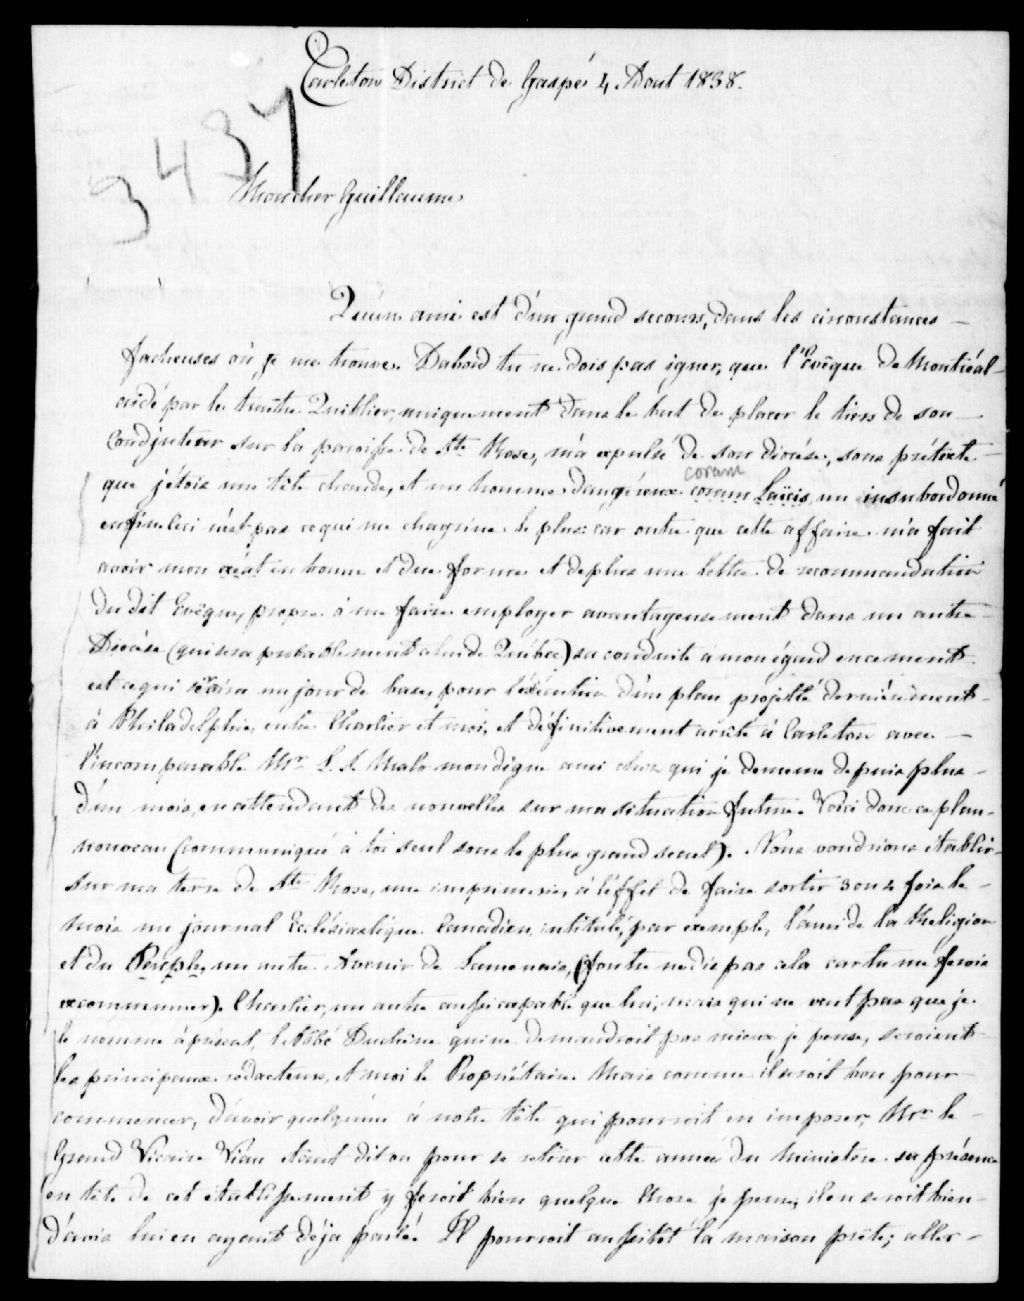 Carleton District de Gaspé 4 Aout 1838.
3437
Moncher Guillaume
Qu'un ami est d'un grand secours, dans les circonstances
facheuses où je me trouve. Dabord tu ne dois pas ignorer, que l'Evêque de Montréal
aidé par le traitre Quiblier, uniquement dans le but de placer le tiers de son
Coadjuteur sur la paroisse de Ste Rose, m'a expulsé de son diocèse, sous prétexte
coram
que j'étois une tête chaude, et un homme dangéreux coram Laïcis, un insubordonné
enfin. Ceci n'est pas ce qui me chagrine le plus: car outre que cette affaire m'a fait
avoir mon exeat en bonne et due forme et de plus une lettre de recommandation
du dit Evêque, propre à me faire employer avantageusement dans un autre
Diocèse (qui sera probablement celui de Québec) sa conduite à mon égard en ce moment
est ce qui servira un jour de base, pour l'éxécution d'un plan projetté dernièrement
à Philadelphie, entre Chartier et moi, et définitivement arrêté à Carleton avec
l'incomparable Mr. L. S. Malo mon digne ami chez qui je demeure depuis plus
d'un mois, en attendant des nouvelles sur ma situation future. Voici donc ce plan
nouveau (communiqué à toi seul sous le plus grand secret). Nous voudrions établir
sur ma terre de Ste Rose, une imprimerie, à l'éffet de faire sortir 3 ou 4 fois le
mois un journal Ecclésiastique Canadien, intitulé, par exemple, l'ami de la Religion
et du Peuple, un autre Avenir de Lamenais, (foutre ne dis pas cela car tu me ferois
excommunier). Chartier, un autre aussi capable que lui, mais qui ne veut pas que je
le nomme à présent, l'abbé Duchaine qui ne demandroit pas mieux je pense, seroient
les principaux rédacteurs, et moi le Propriétaire. Mais comme il seroit bon pour
commencer, d'avoir quelqu'un à notre tête qui pourroit en imposer, Mr. le
Grand Vicaire Viau étant dit on pour se retirer cette année du ministère sa présence
en tête de cet établissement y feroit bien quelque chose je pense, il en seroit bien
d'avis lui en ayant déja parlé. Il pourroit aussitôt la maison prête, aller